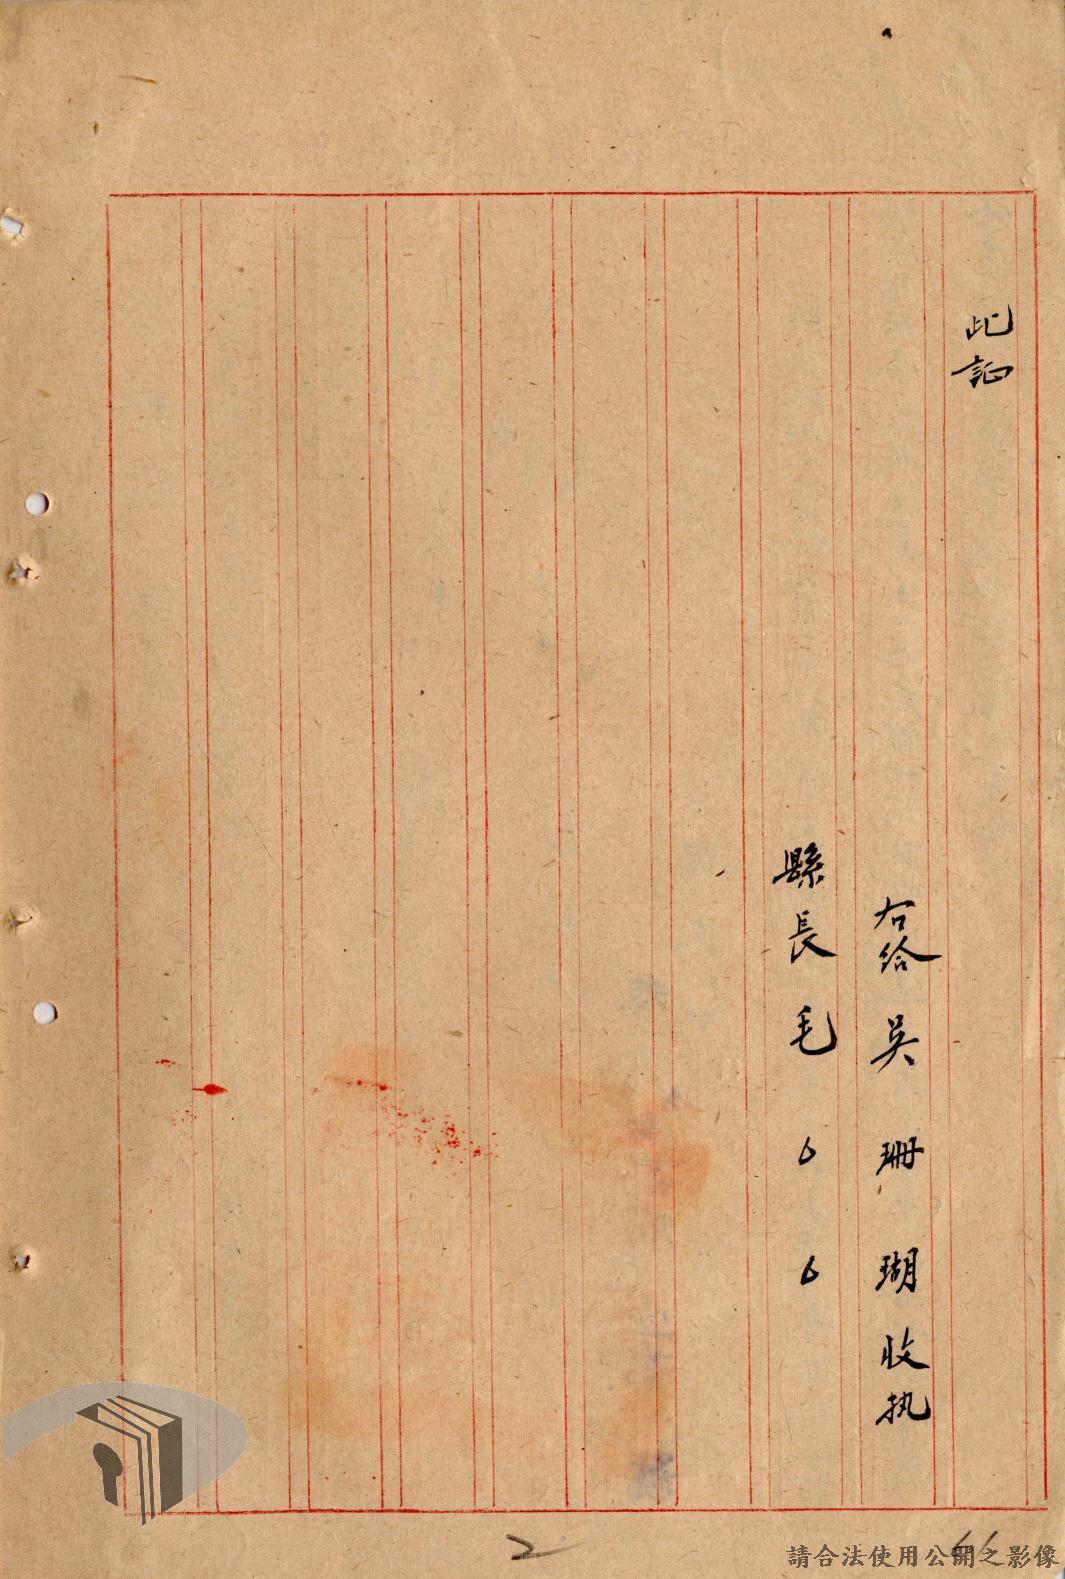 此証
右給吳珊瑚收执
縣長毛
2
請合法使用公開之影像